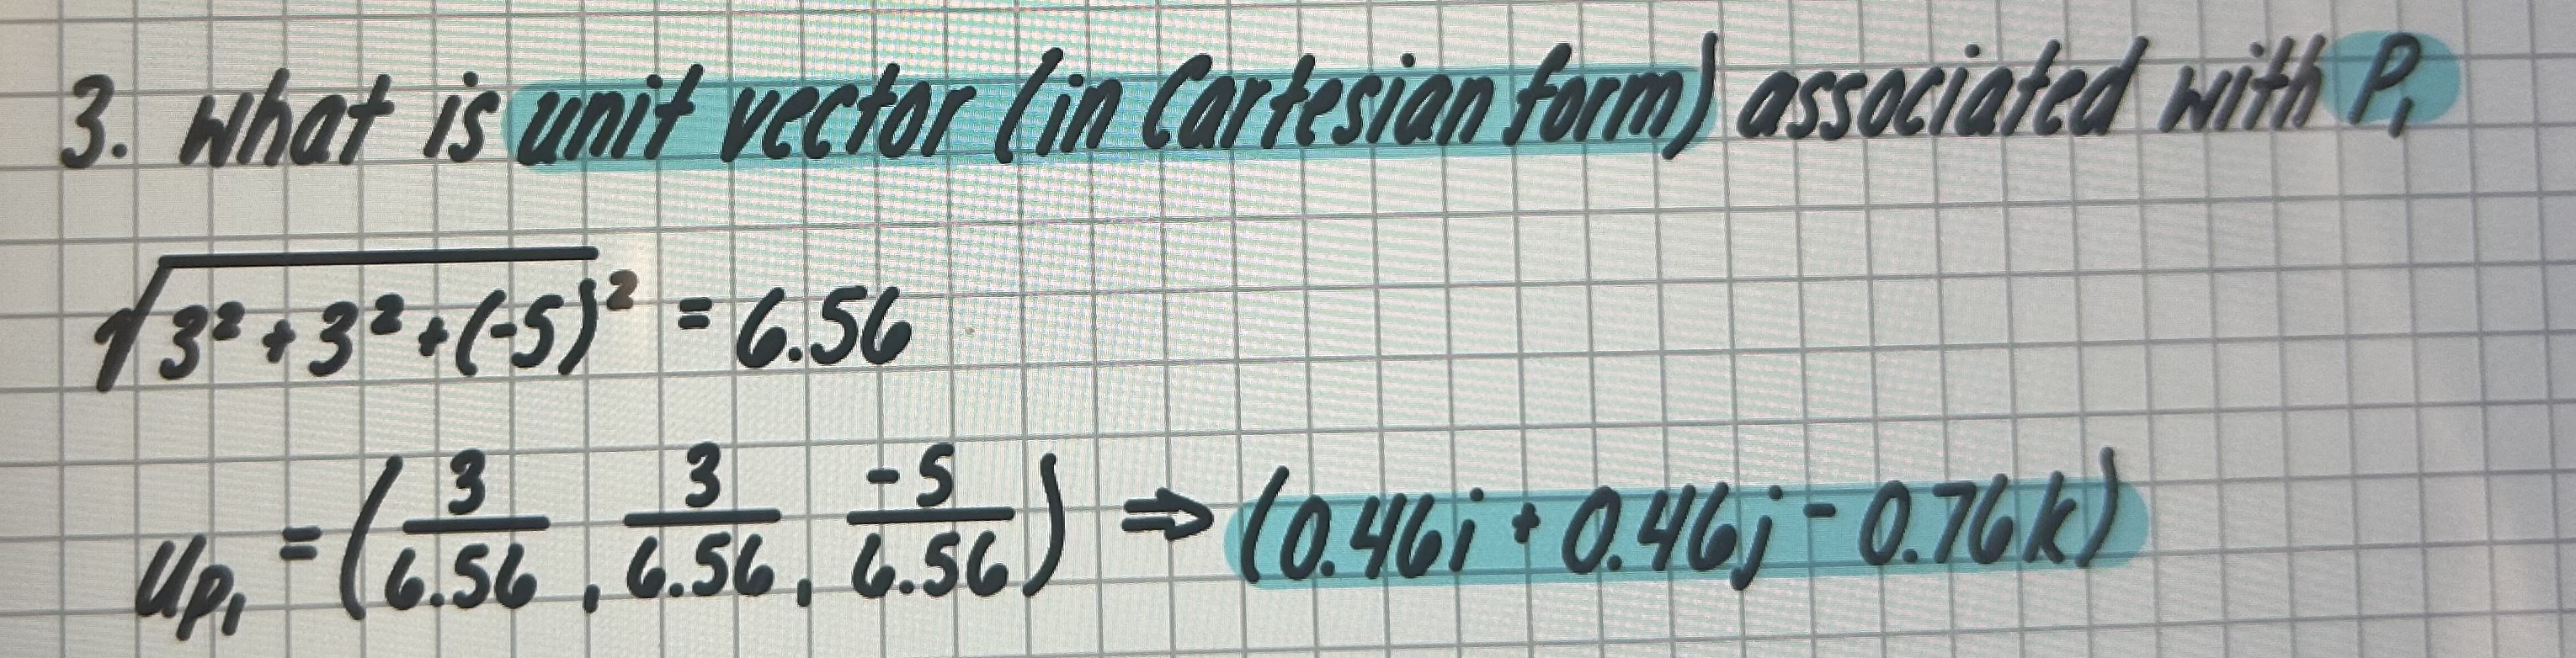 3. What is unit vector (in Cartesian form) associated with P₁
√3² + 3² + (-5)² = 6.56
Up₁ = (3/6.56, 3/6.56, -5/6.56) ⇒ (0.46i + 0.46j - 0.76k)